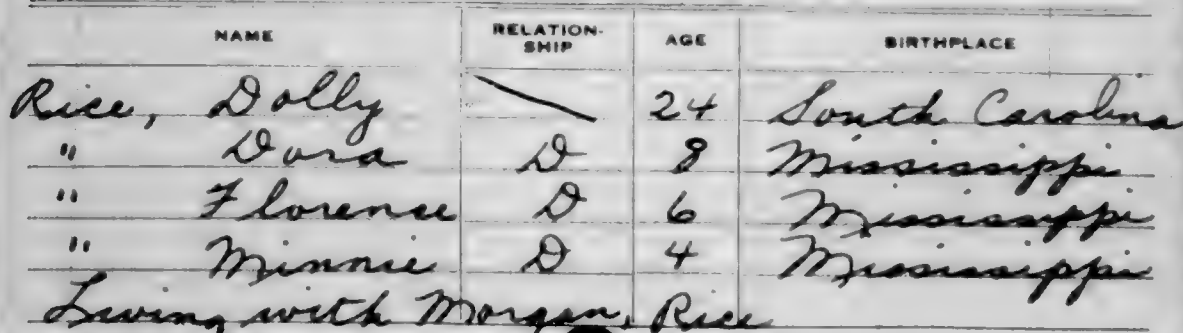 NAME RELATION-SHIP AGE BIRTHPLACE
Rice, Dolly 24 South Carolina
" Dora D 8 Mississippi
" Florence D 6 Mississippi
" Minnie D 4 Mississippi
Living with Morgan, Rice